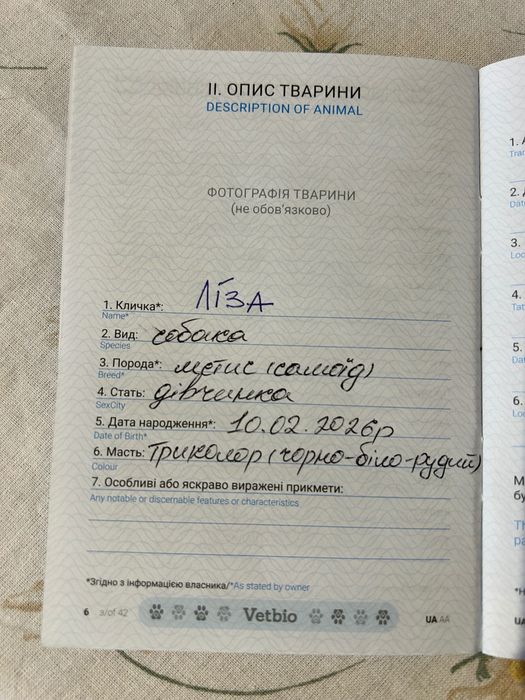 II. ОПИС ТВАРИНИ
DESCRIPTION OF ANIMAL
ФОТОГРАФІЯ ТВАРИНИ
(не обов'язково)
1. Кличка*: ЛІЗА
Name*
2. Вид: собака
Species
3. Порода*: метис (самоїд)
Breed*
4. Стать: дівчинка
SexCity
5. Дата народження*: 10.02.2026р
Date of Birth*
6. Масть: Триколор (чорно-біло-рудий)
Colour
7. Особливі або яскраво виражені прикмети:
Any notable or discernable features or characteristics
*Згідно з інформацією власника/*As stated by owner
6 з/of 42 Vetbio UA AA
1.
2.
3.
4.
5.
6.